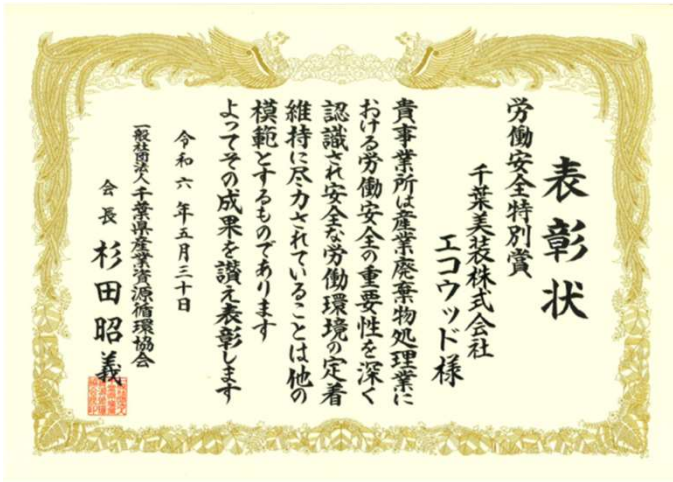 表彰状
労働安全特別賞
千葉美装株式会社
エコウッド様
貴事業所は産業廃棄物処理業に
おける労働安全の重要性を深く
認識され安全な労働環境の定着
維持に尽力されていることは他の
模範とするものであります
よってその成果を讃え表彰します
令和六年五月三十日
一般社団法人千葉県産業資源循環協会
会長 杉田昭義